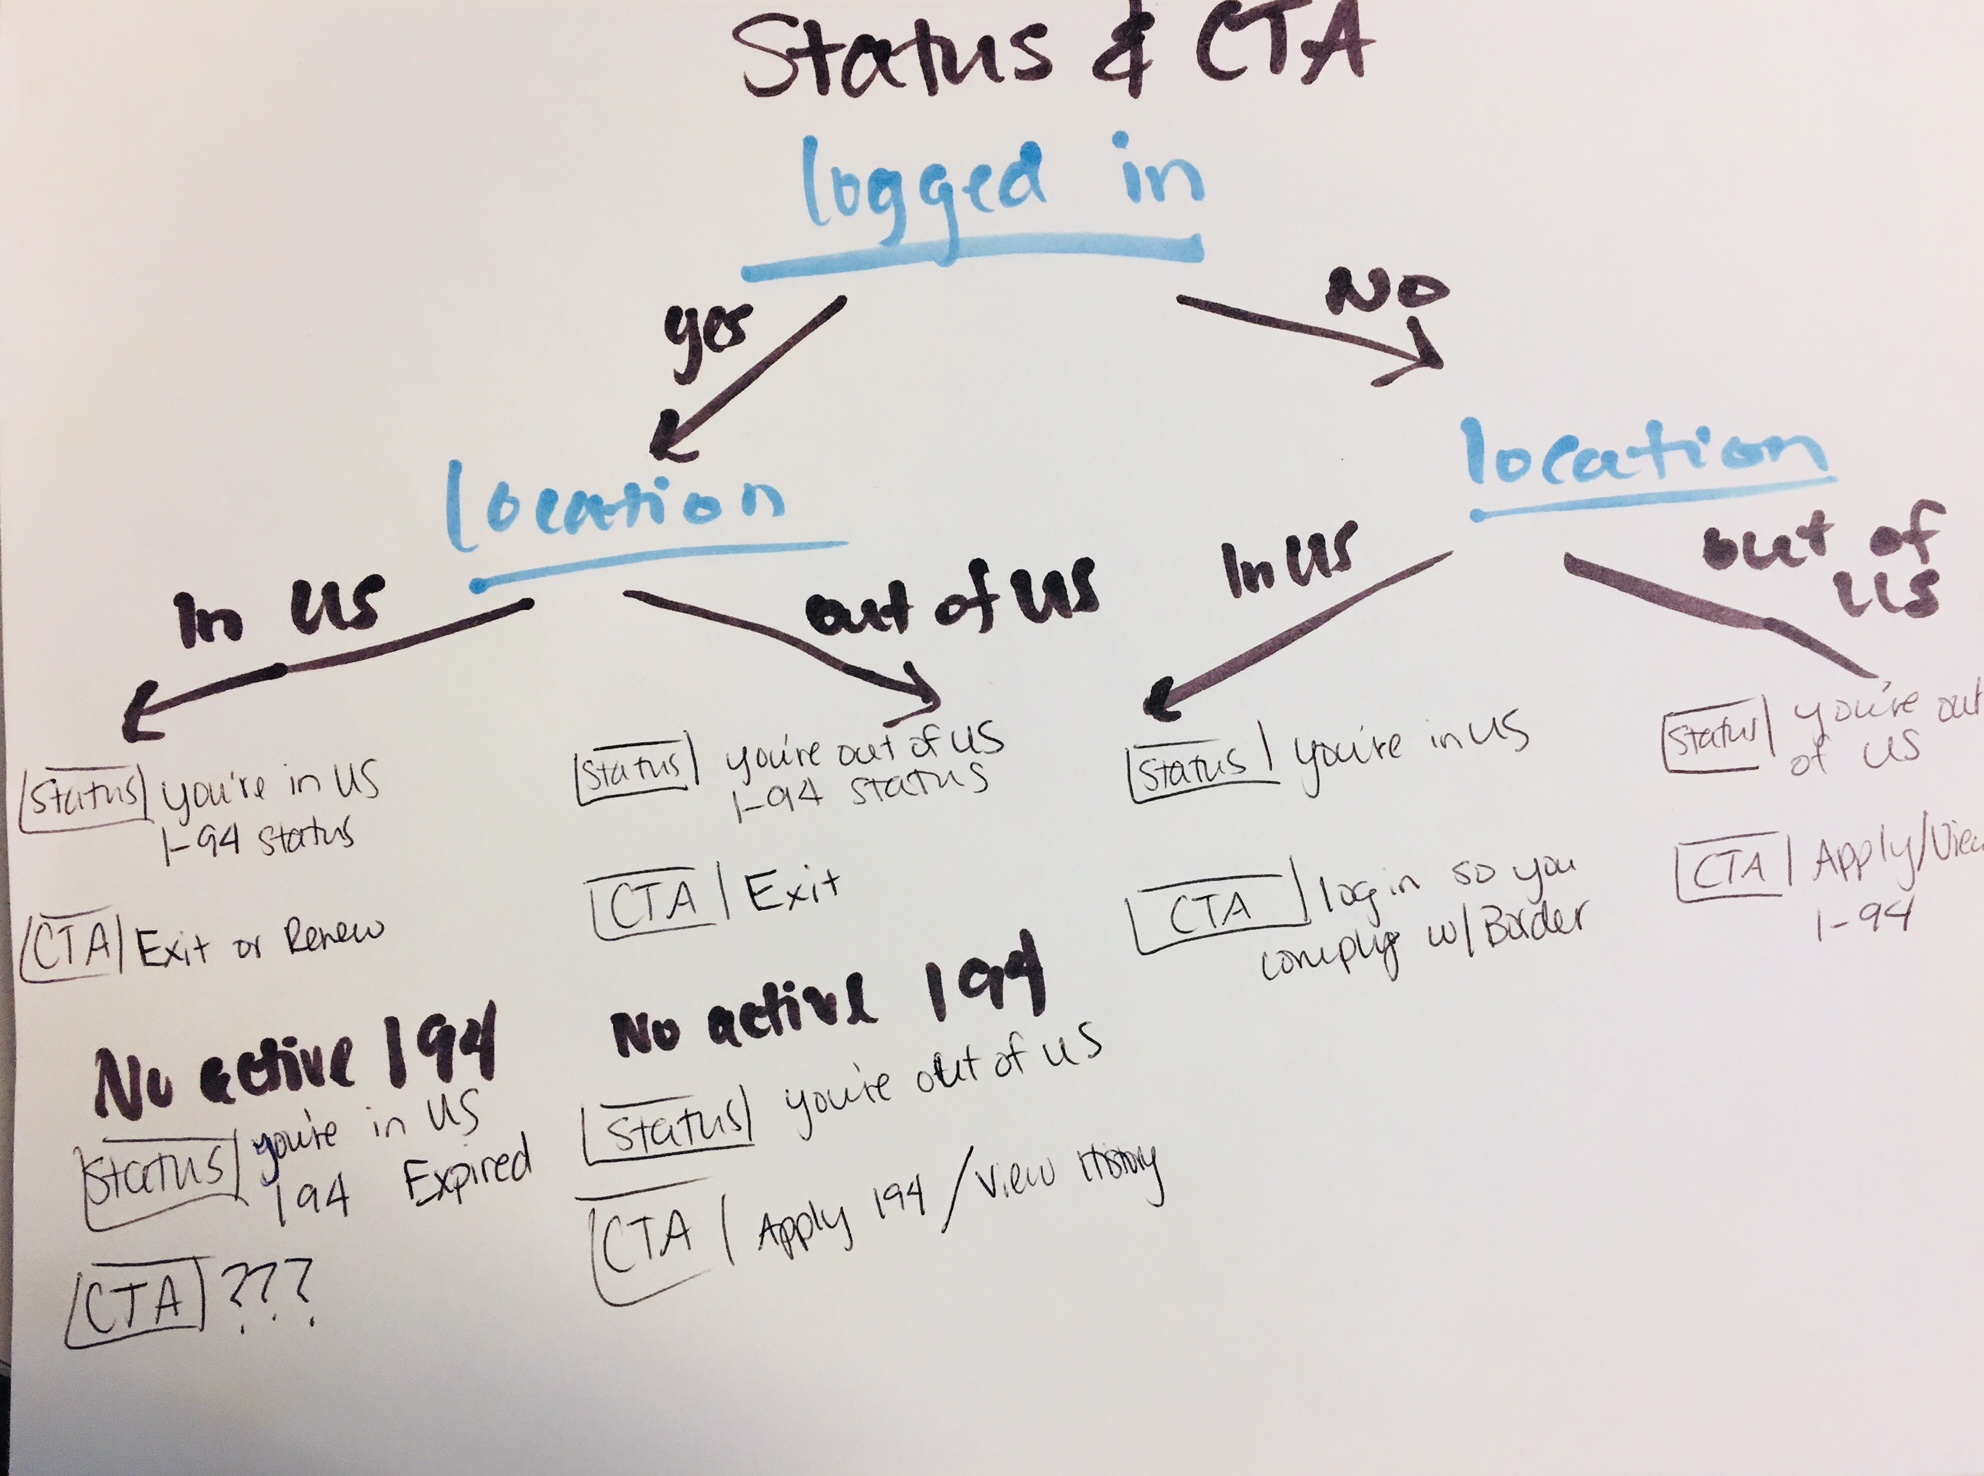 Status & CTA
logged in
yes
NO
location
location
In US
out of US
In US
out of
US
Status you're in US
I-94 status
CTA Exit or Renew
Status you're out of US
I-94 status
CTA Exit
Status you're in US
CTA login so you
comply w/ Border
Status you're out
of US
CTA Apply/View
I-94
No active I94
Status you're in US
I94 Expired
CTA ???
No active I94
Status you're out of US
CTA Apply I94 / View History